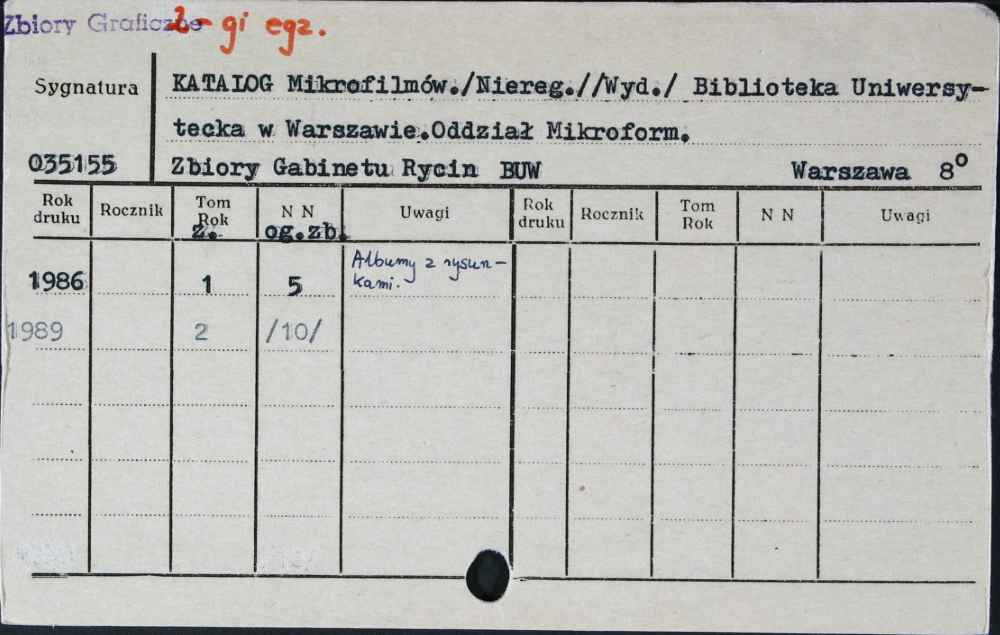 Zbiory Graficzne 2-gi egz.
Sygnatura
KATALOG Mikrofilmów./Niereg.//Wyd./ Biblioteka Uniwersy-
tecka w Warszawie.Oddział Mikroform.
035155 Zbiory Gabinetu Rycin BUW Warszawa 8°
Rok druku Rocznik Tom Rok N N Uwagi Rok druku Rocznik Tom Rok N N Uwagi
z. og.zb.
1986 1 5 Albumy z rysun-
kami.
1989 2 /10/